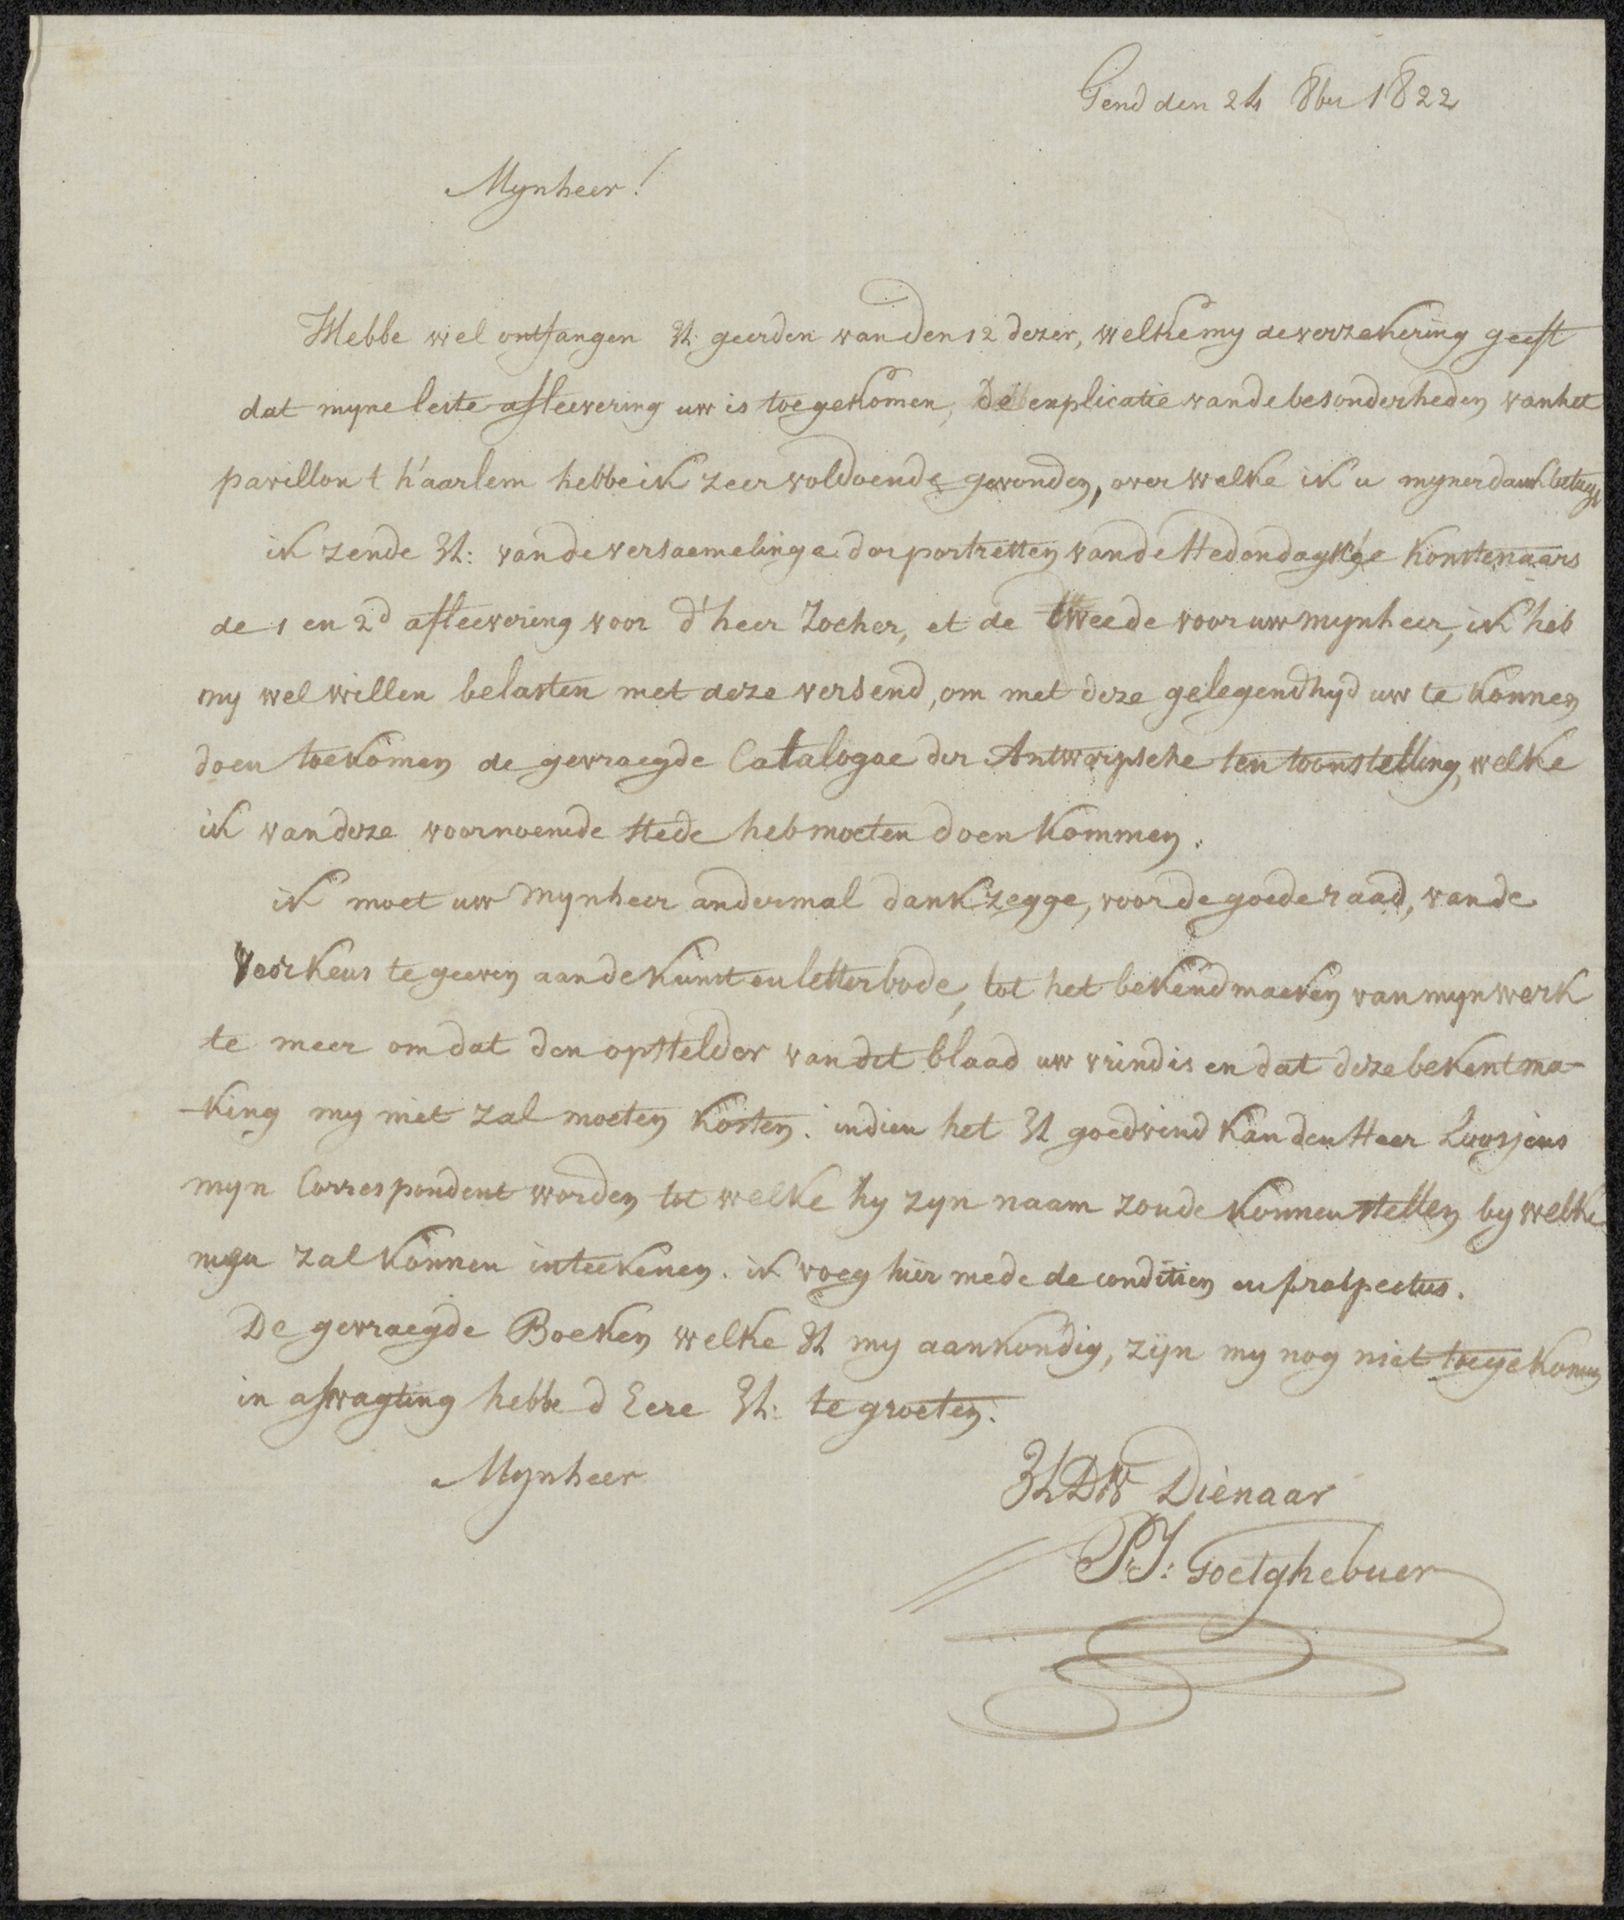 Gend den 24 8ber 1822
Mynheer!
Hebbe wel ontfangen Ul: geerden van den 12 dezer, welke my de verzekering geeft
dat myne leste afleevering uw is toegekomen, De explicatie van de besonderheden van het
pavillon t h'aarlem hebbe ik zeer voldoende gevonden, over welke ik u myner dank betuyg
ik zende Ul: van de versaemelinge der portretten van de Hedendagsche Konstenaars
de 1 en 2d afleevering voor d'heer Zocher, et de tweede voor uw mynheer, ik heb
my wel willen belasten met deze versend, om met deze gelegendhyd uw te konnen
doen toekomen de gevraegde Catalogue der Antwerpsche ten toonstelling, welke
ik van deze voornoemde stede heb moeten doen kommen.
ik moet uw Mynheer andermal dank zegge, voor de goede raad, van de
veorkeus te geeven aan de Kunst en letterbode, tot het bekend maeken van myn werk
te meer om dat den opstelder van dit blaad uw vrind is en dat deze bekentma-
-king my niet zal moeten kosten. indien het Ul goedvind kan den Heer Loosjens
myn Correspondent worden, tot welke hy zyn naam zoude konnen stellen by welke
men zal konnen inteekenen. ik voeg hier mede de conditien en prospectus.
De gevraegde Boeken welke Ul my aankondig, zyn my nog niet toegekomen
in afwagting hebbe d Eere Ul: te groeten.
Mynheer
UlDW Dienaar
P.J: Goetghebuer